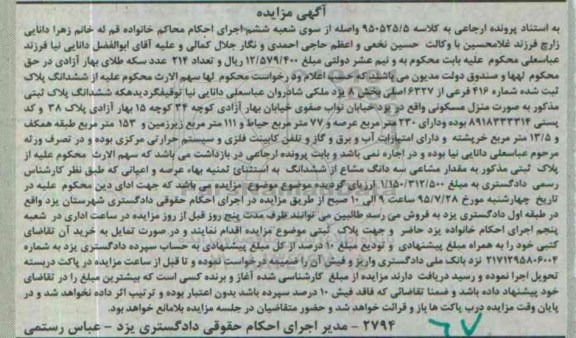 آگهی مزایده
به استناد پرونده ارجاعی به کلاسه ۹۵۰۵۲۵/۵ واصله از سوی شعبه ششم اجرای احکام محاکم خانواده قم له خانم زهرا دانایی
زارچ فرزند غلامحسین با وکالت حسین نخعی و اعظم حاجی احمدی و نگار جلال کمالی و علیه آقای ابوالفضل دانایی نیا فرزند
عباسعلی محکوم علیه بابت محکوم به و نیم عشر دولتی مبلغ ۱۲/۵۷۹/۴۰۰ ریال و تعداد ۲۱۴ عدد سکه طلای بهار آزادی در حق
محکوم لهها و صندوق دولت مدیون می باشند که حسب اعلام و درخواست محکوم لها سهم الارث محکوم علیه از ششدانگ پلاک
ثبت شماره ۴۱۶ فرعی از ۶۳۲۷ اصلی بخش ۸ یزد ملکی شادروان عباسعلی دانایی نیا توقیف گردید که ششدانگ پلاک ثبتی
مذکور به صورت منزل مسکونی واقع در یزد خیابان نواب صفوی خیابان بهار آزادی کوچه ۳۴ کوچه ۱۵ بهار آزادی پلاک ۳۸ و کد
پستی ۸۹۱۸۳۳۳۳۱۴ بوده و دارای ۲۳۰ متر مربع عرصه و ۷۷ متر مربع حیاط و ۱۱۱ متر مربع زیرزمین و ۱۵۳ متر مربع طبقه همکف
و ۱۳/۵ متر مربع خرپشته و دارای امتیازات آب و برق و گاز و تلفن کابینت فلزی و سیستم حرارتی مرکزی بوده و در تصرف ورثه
مرحوم عباسعلی دانایی نیا بوده و در اجاره نمی باشد و بابت پرونده ارجاعی در بازداشت می باشد که سهم الارث محکوم علیه از
پلاک ثبتی مذکور به مقدار مشاعی سه دانگ مشاع از ششدانگ به استثنای ثمنیه بهاء عرصه و اعیانی که طبق نظر کارشناس
رسمی دادگستری به مبلغ ۱/۱۵۰/۳۱۲/۵۰۰ ارزیابی گردیده موضوع مزایده می باشد که جهت ادای دین محکوم علیه در
تاریخ چهارشنبه مورخ ۹۵/۷/۲۸ ساعت ۹ الی ۱۰ صبح از طریق مزایده در اجرای احکام حقوقی دادگستری شهرستان یزد واقع
در طبقه اول دادگستری یزد به فروش می رسد طالبین می توانند ظرف مدت پنج روز قبل از روز مزایده در ساعت اداری در شعبه
پنجم اجرای احکام خانواده یزد حاضر و جهت پلاک ثبتی موضوع مزایده اقدام نمایند و در صورت تمایل به خرید آن تقاضای
کتبی خود را به همراه مبلغ پیشنهادی و تودیع مبلغ ۱۰ درصد از کل مبلغ پیشنهادی به حساب سپرده دادگستری یزد به شماره
۲۱۷۱۲۹۵۸۰۶۰۰۴ نزد بانک ملی دادگستری واریز و فیش آن را ضمیمه درخواست نموده و تا قبل از ساعت مزایده در پاکت دربسته
تحویل اجرا نموده و رسید دریافت دارند مزایده از مبلغ کارشناسی شده آغاز و برنده کسی است که بیشترین مبلغ را در تقاضای
خود پیشنهاد داده باشد و ضمنا تقاضائی که فاقد فیش ۱۰ درصد سپرده باشد بدون اعتبار بوده و ترتیب اثر داده نخواهد شد و در
پایان وقت مزایده درب پاکت ها باز و قرائت خواهد شد و حضور متقاضیان در جلسه مزایده بلامانع خواهد بود.
۲۷۹۴ - مدیر اجرای احکام حقوقی دادگستری یزد - عباس رستمی
۶۷